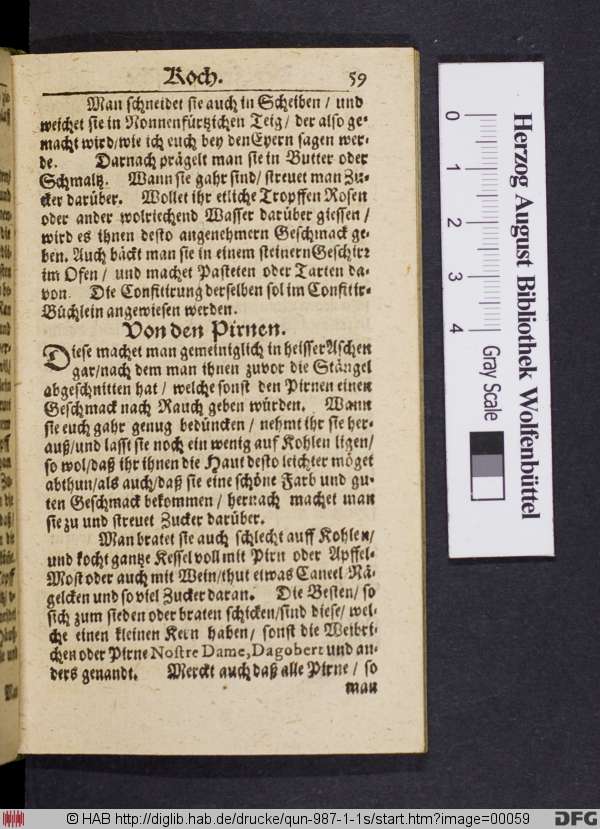 Koch. 59
Man schneidet sie auch in Scheiben / und
weichet sie in Nonnenfürtzichen Teig / der also ge-
macht wird/wie ich euch bey den Eyern sagen wer-
de. Darnach prägelt man sie in Butter oder
Schmaltz. Wann sie gahr sind/ streuet man Zu-
cker darüber. Wollet ihr etliche Tropffen Rosen
oder ander wolriechend Wasser darüber giessen /
wird es ihnen desto angenehmern Geschmack ge-
ben. Auch bäckt man sie in einem steinern Geschirz
im Ofen / und machet Pasteten oder Tarten da-
von. Die Confitirung derselben sol im Confitir-
Büchlein angewiesen werden.
Von den Pirnen.
Diese machet man gemeiniglich in heisser Aschen
gar/nach dem man ihnen zuvor die Stängel
abgeschnitten hat / welche sonst den Pirnen einen
Geschmack nach Rauch geben würden. Wann
sie euch gahr genug bedüncken / nehmt ihr sie her-
auß/und lasst sie noch ein wenig auf Kohlen ligen/
so wol/daß ihr ihnen die Haut desto leichter möget
abthun/als auch/daß sie eine schöne Farb und gu-
ten Geschmack bekommen / hernach machet man
sie zu und streuet Zucker darüber.
Man bratet sie auch schlecht auff Kohlen/
und kocht gantze Kessel voll mit Pirn oder Apffel-
Most oder auch mit Wein/thut etwas Caneel Nä-
gelcken und so viel Zucker daran. Die Besten/ so
sich zum sieden oder braten schicken/sind diese/ wel-
che einen kleinen Kern haben/ sonst die Weibri-
chen oder Pirne Nostre Dame, Dagobert und an-
ders genandt. Merckt auch daß alle Pirne / so
man
0 1 2 3 4
Gray Scale
Herzog August Bibliothek Wolfenbüttel
© HAB http://diglib.hab.de/drucke/qun-987-1-1s/start.htm?image=00059
DFG